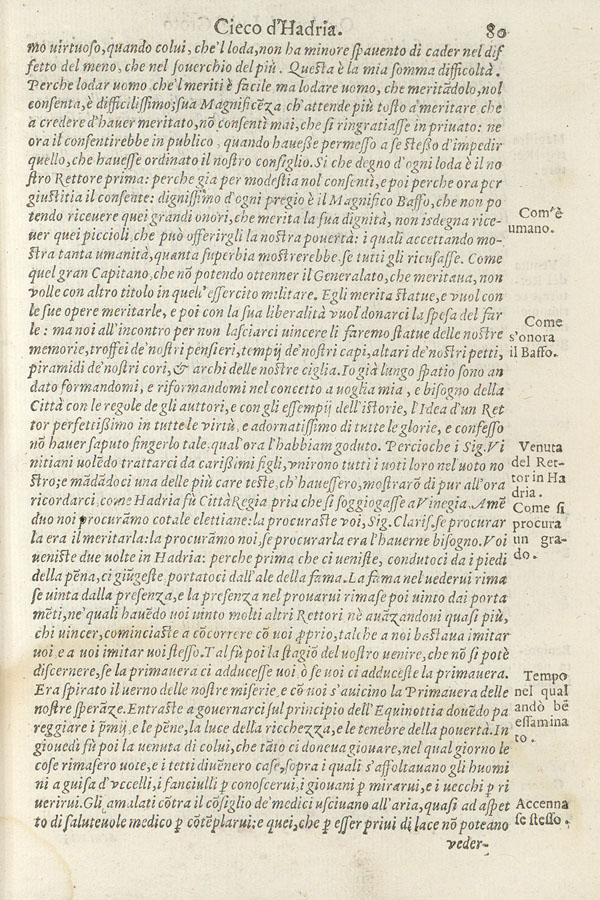 Cieco d'Hadria. 80
mo uirtuoso, quando colui, che'l loda, non ha minore spauento di cader nel dif
fetto del meno, che nel souerchio del più. Questa è la mia somma difficoltà.
Perche lodar uomo, che'l meriti è facile ma lodare uomo, che meritãdolo, nol
consenta, è difficilissimo; sua Magnificẽza ch'attende più tosto a meritare che
a credere d'hauer meritato, nõ consentì mai, che si ringratiasse in priuato: ne
ora il consentirebbe in publico, quando hauesse permesso a se stesso d'impedir
quello, che hauesse ordinato il nostro consiglio. Si che degno d'ogni loda è il no
stro Rettore prima: perche gia per modestia nol consentì, e poi perche ora per
giustitia il consente: dignissimo d'ogni pregio è il Magnifico Basso, che non po
tendo riceuere quei grandi onori, che merita la sua dignità, non isdegna rice-
uer quei piccioli, che può offerirgli la nostra pouertà: i quali accettando mo-
stra tanta umanità, quanta superbia mostrerebbe se tutti gli ricusasse. Come
quel gran Capitano, che nõ potendo ottenner il Generalato, che meritaua, non
volle con altro titolo in quell'essercito militare. Egli merita statue, e vuol con
le sue opere meritarle, e poi con la sua liberalità vuol donarci la spesa del far
le: ma noi all'incontro per non lasciarci uincere li faremo statue delle nostre
memorie, troffei de'nostri pensieri, tempij de'nostri capi, altari de'nostri petti,
piramidi de'nostri cori, & archi delle nostre ciglia. Io già lungo spatio sono an
dato formandomi, e riformandomi nel concetto a uoglia mia, e bisogno della
Città con le regole de gli auttori, e con gli essempij dell'istorie, l'Idea d'un Ret
tor perfettissimo in tutte le virtù, e adornatissimo di tutte le glorie, e confesso
nõ hauer saputo fingerlo tale, qual'ora l'habbiam goduto. Percioche i Sig. Vi
nitiani uolẽdo trattarci da carissimi figli, vnirono tutti i uoti loro nel uoto no
stro; e mãdãdoci una delle più care teste, ch'hauessero, mostrarõ di pur all'ora
ricordarci, come Hadria fù Città Regia pria che si soggiogasse a Vinegia. Amẽ
duo noi procurãmo cotale elettiane: la procuraste voi, Sig. Clariss. se procurar
la era il meritarla: la procurãmo noi, se procurarla era l'hauerne bisogno. Voi
ueniste due uolte in Hadria: perche prima che ci ueniste, condutoci da i piedi
della pẽna, ci giũgeste, portatoci dall'ale della fama. La fama nel uederui rima
se uinta dalla presenza, e la presenza nel prouarui rimase poi uinto dai porta
mẽti, ne'quali hauẽdo uoi uinto molti altri Rettori nè auãzandoui quasi più,
chi uincer, cominciaste a cõcorrere cõ uoi ꝓprio, talche a noi bastaua imitar
uoi, e a uoi imitar uoi stesso. Tal fù poi la stagiõ del uostro uenire, che nõ si potè
discernere, se la primauera ci adducesse uoi, ò se uoi ci adduceste la primauera.
Era spirato il uerno delle nostre miserie, e cõ uoi s'auicino la Primauera delle
nostre sperãze. Entraste a gouernarci sul principio dell'Equinottia douẽdo pa
reggiare i p̃mij, e le pẽne, la luce della ricchezza, e le tenebre della pouertà. In
giouedì fù poi la uenuta di colui, che tãto ci doneua giouare, nel qual giorno le
cose rimasero uote, e i tetti diuẽnero case, sopra i quali s'affoltauano gli huomi
ni a guisa d'vccelli, i fanciulli ꝑ conoscerui, i giouani ꝑ mirarui, e i uecchi ꝑ ri
uerirui. Gli amalati cõtra il cõsiglio de'medici usciuano all'aria, quasi ad aspet
to di saluteuole medico ꝑ cõtẽplarui: e quei, che ꝑ esser priui di lace nõ poteano
veder-
Com'è
umano.
Come
s'onora
il Basso.
Venuta
del Ret-
tor in Ha
dria.
Come si
procura
un gra-
do.
Tempo
nel qual
andò bẽ
essamina
to.
Accenna
se stesso.